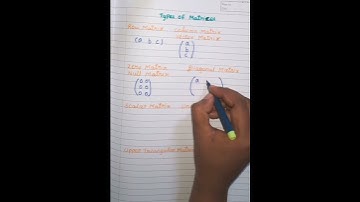 Types of Matrices
Row Matrix
Column Matrix
Vector Matrix
(a b c)
(a
b
c)
Zero Matrix
Null Matrix
Diagonal Matrix
(0 0
0 0
0 0)
(a
Scalar Matrix
Upper Triangular Matrix